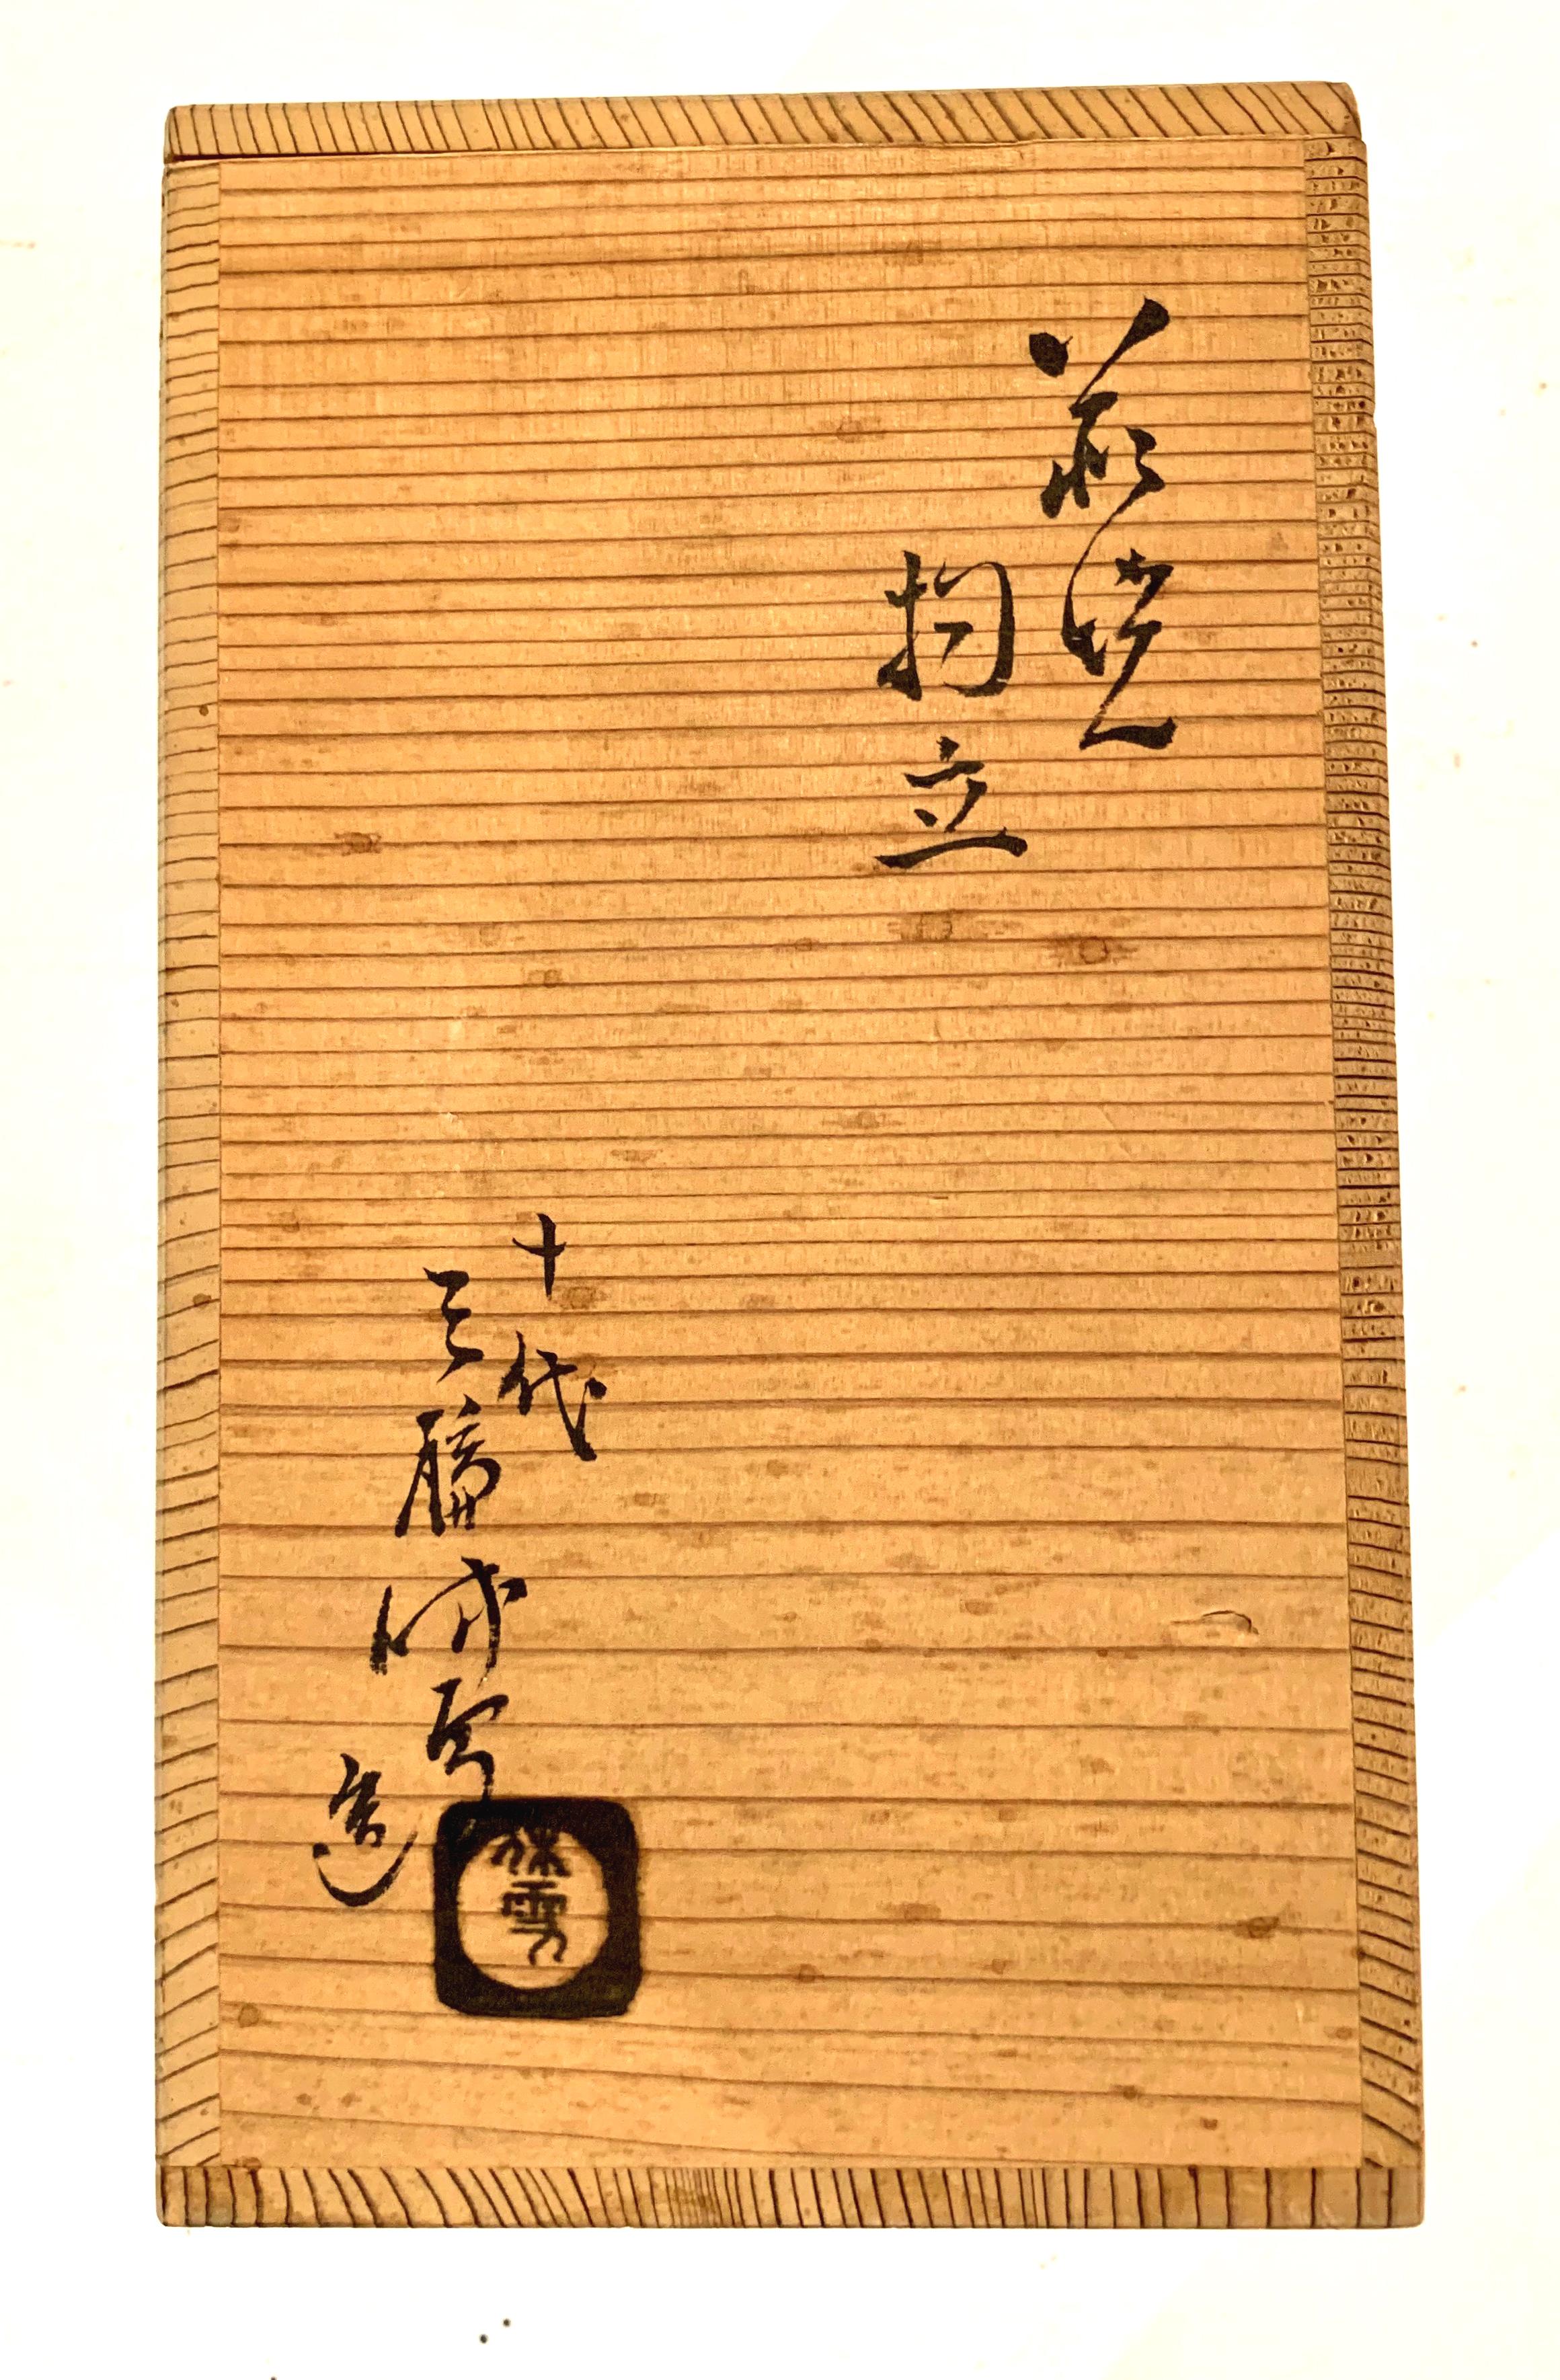 萩焼
杓立
十代
三輪休雪
造
休雪